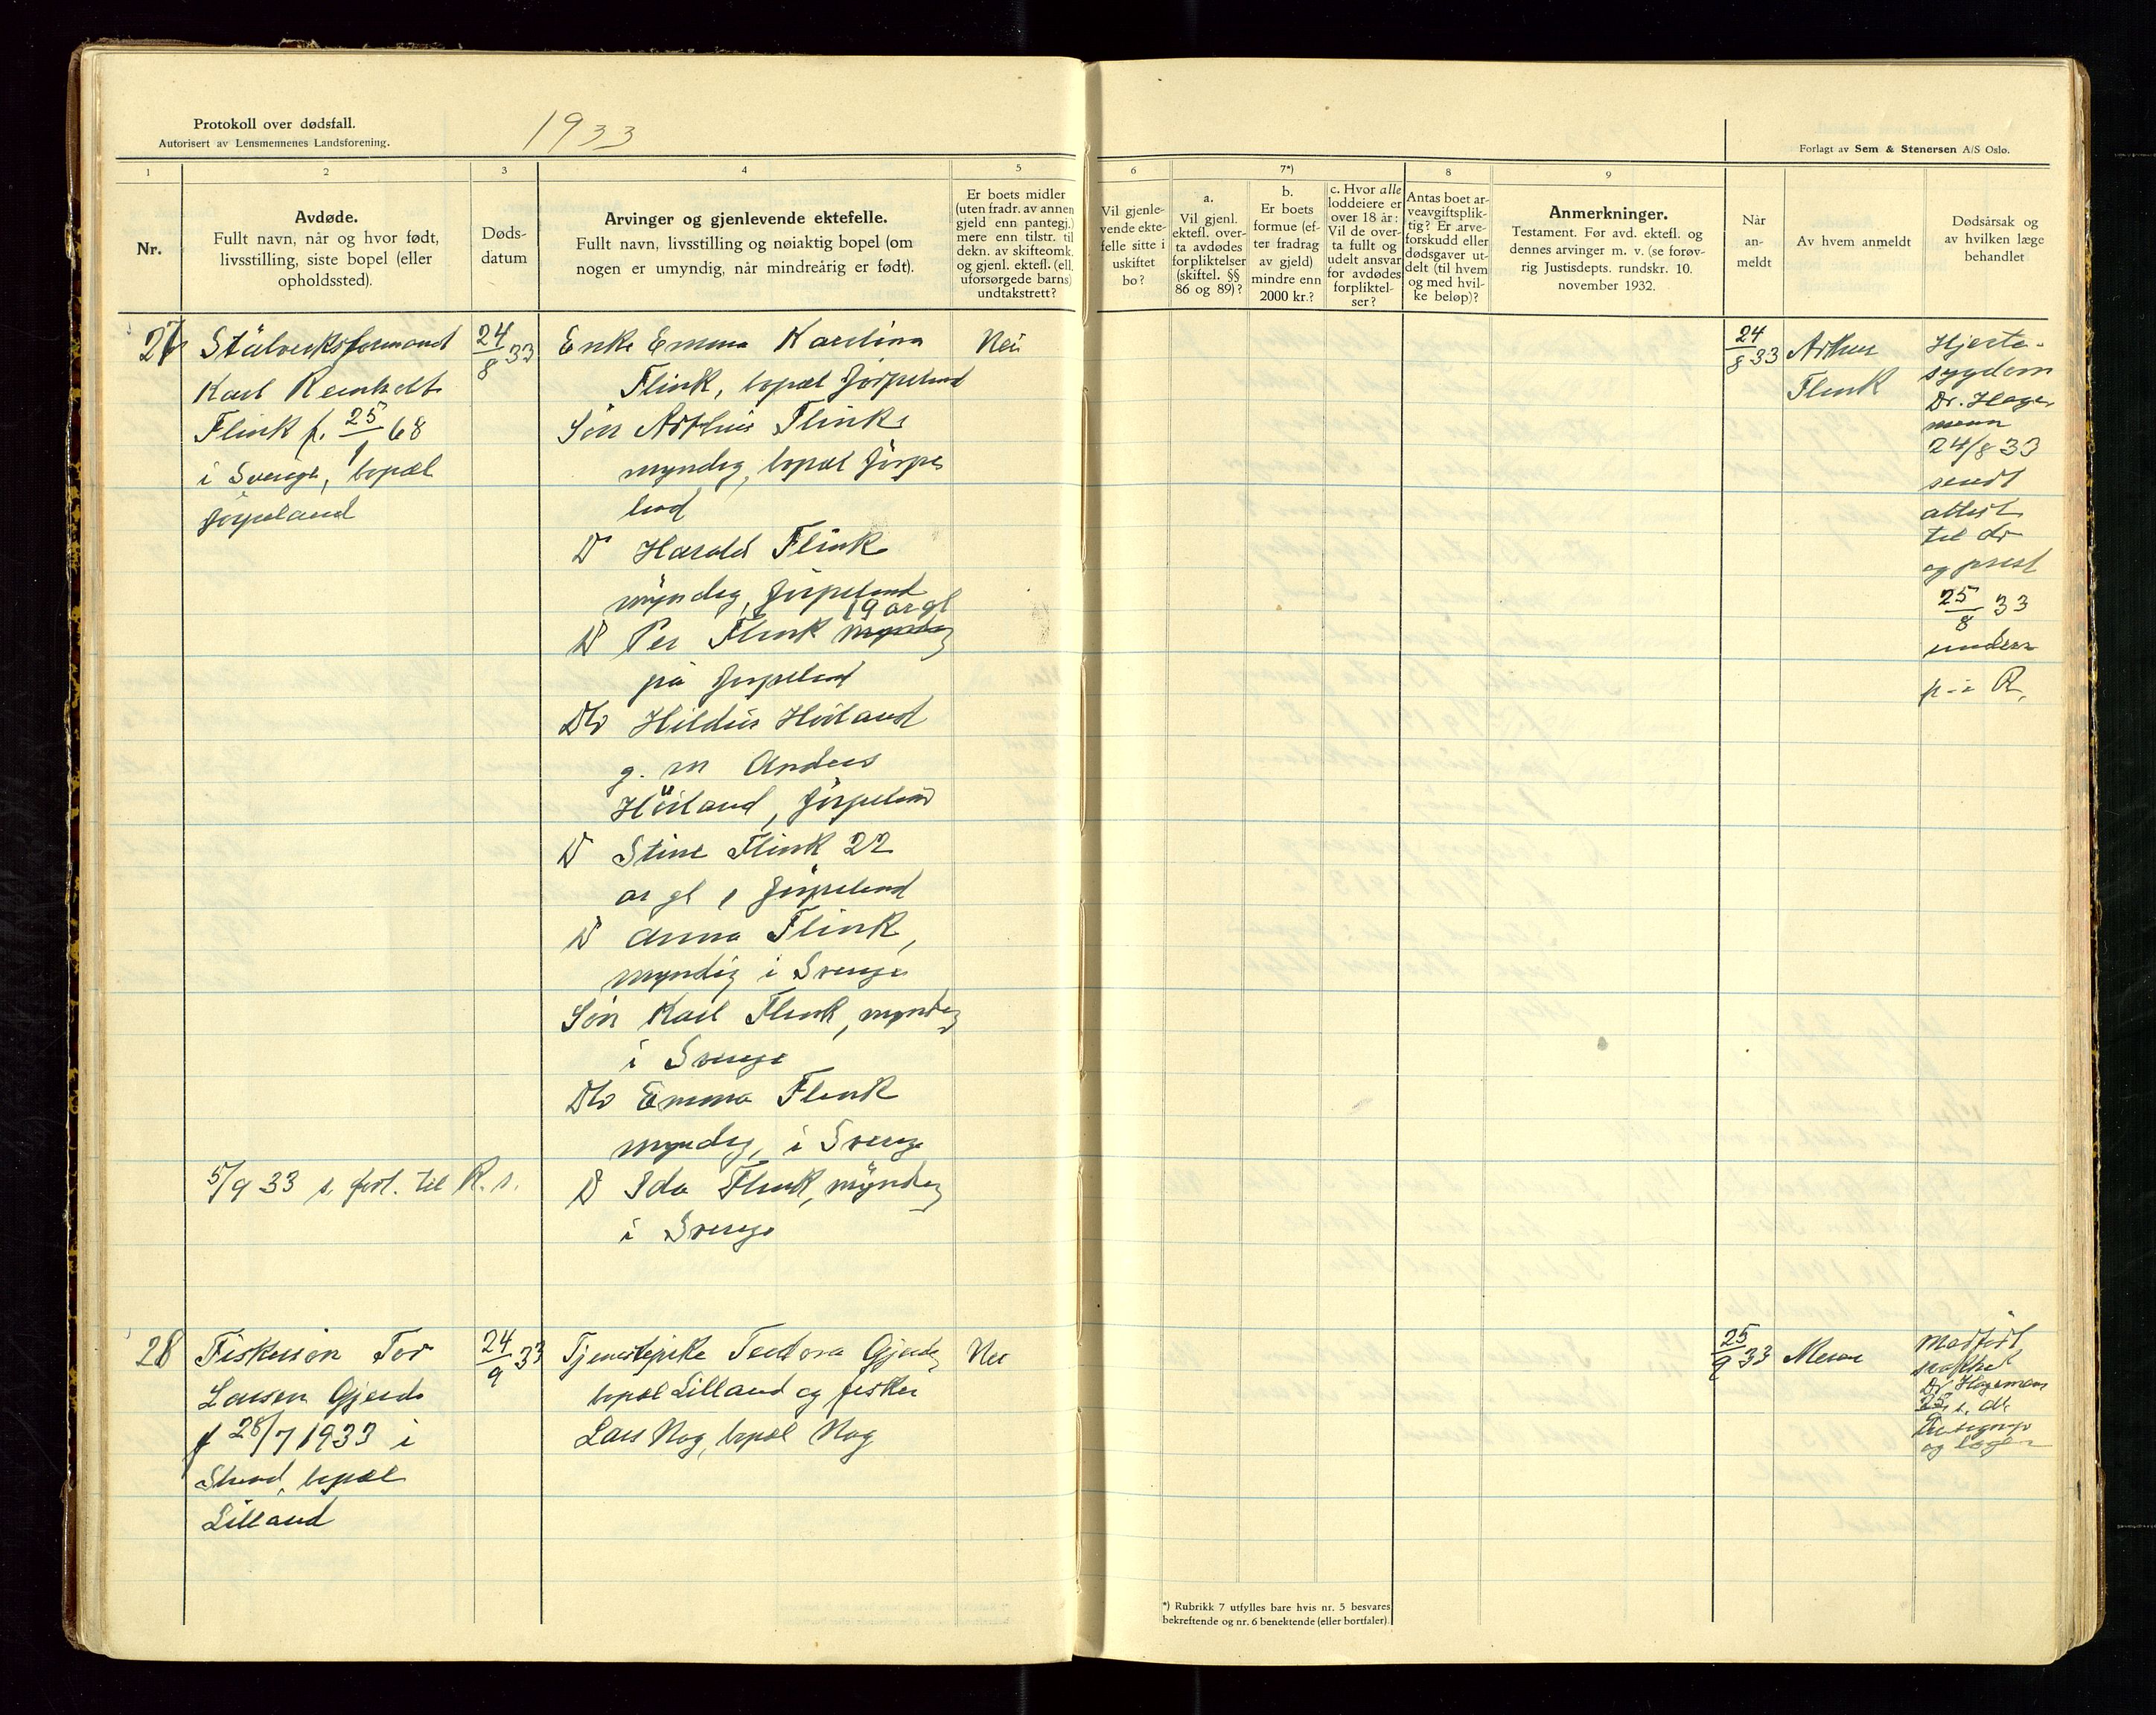 Protokoll over dødsfall.
Autorisert av Lensmennenes Landsforening.
1933
Forlagt av Sem & Stenersen A/S Oslo.
1
Nr.
2
Avdøde.
Fullt navn, når og hvor født,
livsstilling, siste bopel (eller
opholdssted).
3
Døds-
datum
4
Arvinger og gjenlevende ektefelle.
Fullt navn, livsstilling og nøiaktig bopel (om
nogen er umyndig, når mindreårig er født).
5
Er boets midler
(uten fradr. av annen
gjeld enn pantegj.)
mere enn tilstr. til
dekn. av skifteomk.
og gjenl. ektefl. (ell.
uforsørgede barns)
undtakstrett?
6
Vil gjenle-
vende ekte-
felle sitte i
uskiftet
bo?
7*)
a.
Vil gjenl.
ektefl. over-
ta avdødes
forpliktelser
(skiftel. §§
86 og 89)?
b.
Er boets
formue (ef-
ter fradrag
av gjeld)
mindre enn
2000 kr.?
c. Hvor alle
loddeiere er
over 18 år:
Vil de over-
ta fullt og
udelt ansvar
for avdødes
forpliktel-
ser?
8
Antas boet ar-
veavgiftsplik-
tig? Er arve-
forskudd eller
dødsgaver ut-
delt (til hvem
og med hvil-
ke beløp)?
9
Anmerkninger.
Testament. Før avd. ektefl. og
dennes arvinger m. v. (se forøv-
rig Justisdepts. rundskr. 10.
november 1932.
Når
an-
meldt
Av hvem anmeldt
Dødsårsak og
av hvilken læge
behandlet
27
Stålverksformand
Karl Reinholt
Flink f. 25/1 68
i Sverige, bopæl
Jörpeland
24/8 33
Enke Emma Karolina
Flink, bopæl Jörpeland
Sön Arthur Flink
myndig, bopæl Jörpe
land
D Harald Flink
myndig, Jörpeland
19 år gl
D Per Flink myndig
på Jörpeland
Dtr Hildur Höiland
g. m Anders
Höiland, Jörpeland
D Stine Flink 22
år gl, Jörpeland
D Anna Flink,
myndig i Sverige
Sön Karl Flink, myndig
i Sverige
Dtr Emma Flink
myndig, i Sverige
D Ida Flink, myndig
i Sverige
Nei
24/8 33
Arthur
Flink
Hjerte-
sygdom
Dr. Hage
mann
24/8 33
sendt
attest
til dr
og prest
25/8 33
undern
p-i R.
5/9 33 s. forl. til R. s.
28
Fiskersön Tor
Larsen Gjerde
f 28/7 1933 i
Strand, bopæl
Lilland
24/9 33
Tjenestepike Teodora Gjerde,
bopæl Lilland og fisker
Lars Nag, bopæl Nag
Nei
25/9 33
Moren
Medfödt
svakhet
Dr Hagemann
25/9 s. att.
og lægen
*) Rubrikk 7 utfylles bare hvis nr. 5 besvares
bekreftende og nr. 6 benektende (eller bortfaler).